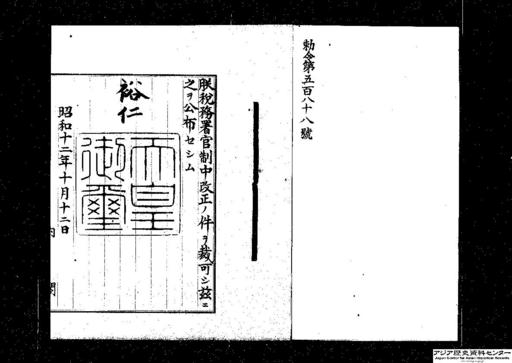 勅令第五百八十八號
朕稅務署官制中改正ノ件ヲ裁可シ茲ニ
之ヲ公布セシム
裕仁
天皇
御璽
昭和十二年十月十二日
内
閣
アジア歴史資料センター
Japan Center for Asian Historical Records